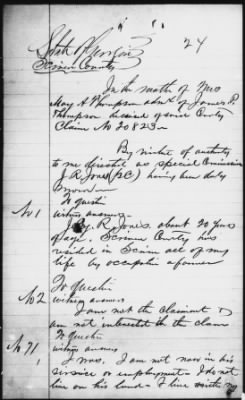 State of Georgia
24
Screven County
In the matter of Mrs
Mary A Thompson admx of James P.
Thompson deceased of said County
Claim No 20823
By virtue of authority
to me directed as special Commissioner
J. R. Jones having been duly
sworn
To Questi
No 1
witness answers
R. Jones. about 20 years
of age. Screven County has
resided in Screven all of my
life by occupation a farmer
To Questi
No 2
witness answers
I am not the claimant &
am not interested in the claim
To Questi
No 71
witness answers
I was. I am not now in his
service or employment - I do not
live on his land - I live with my